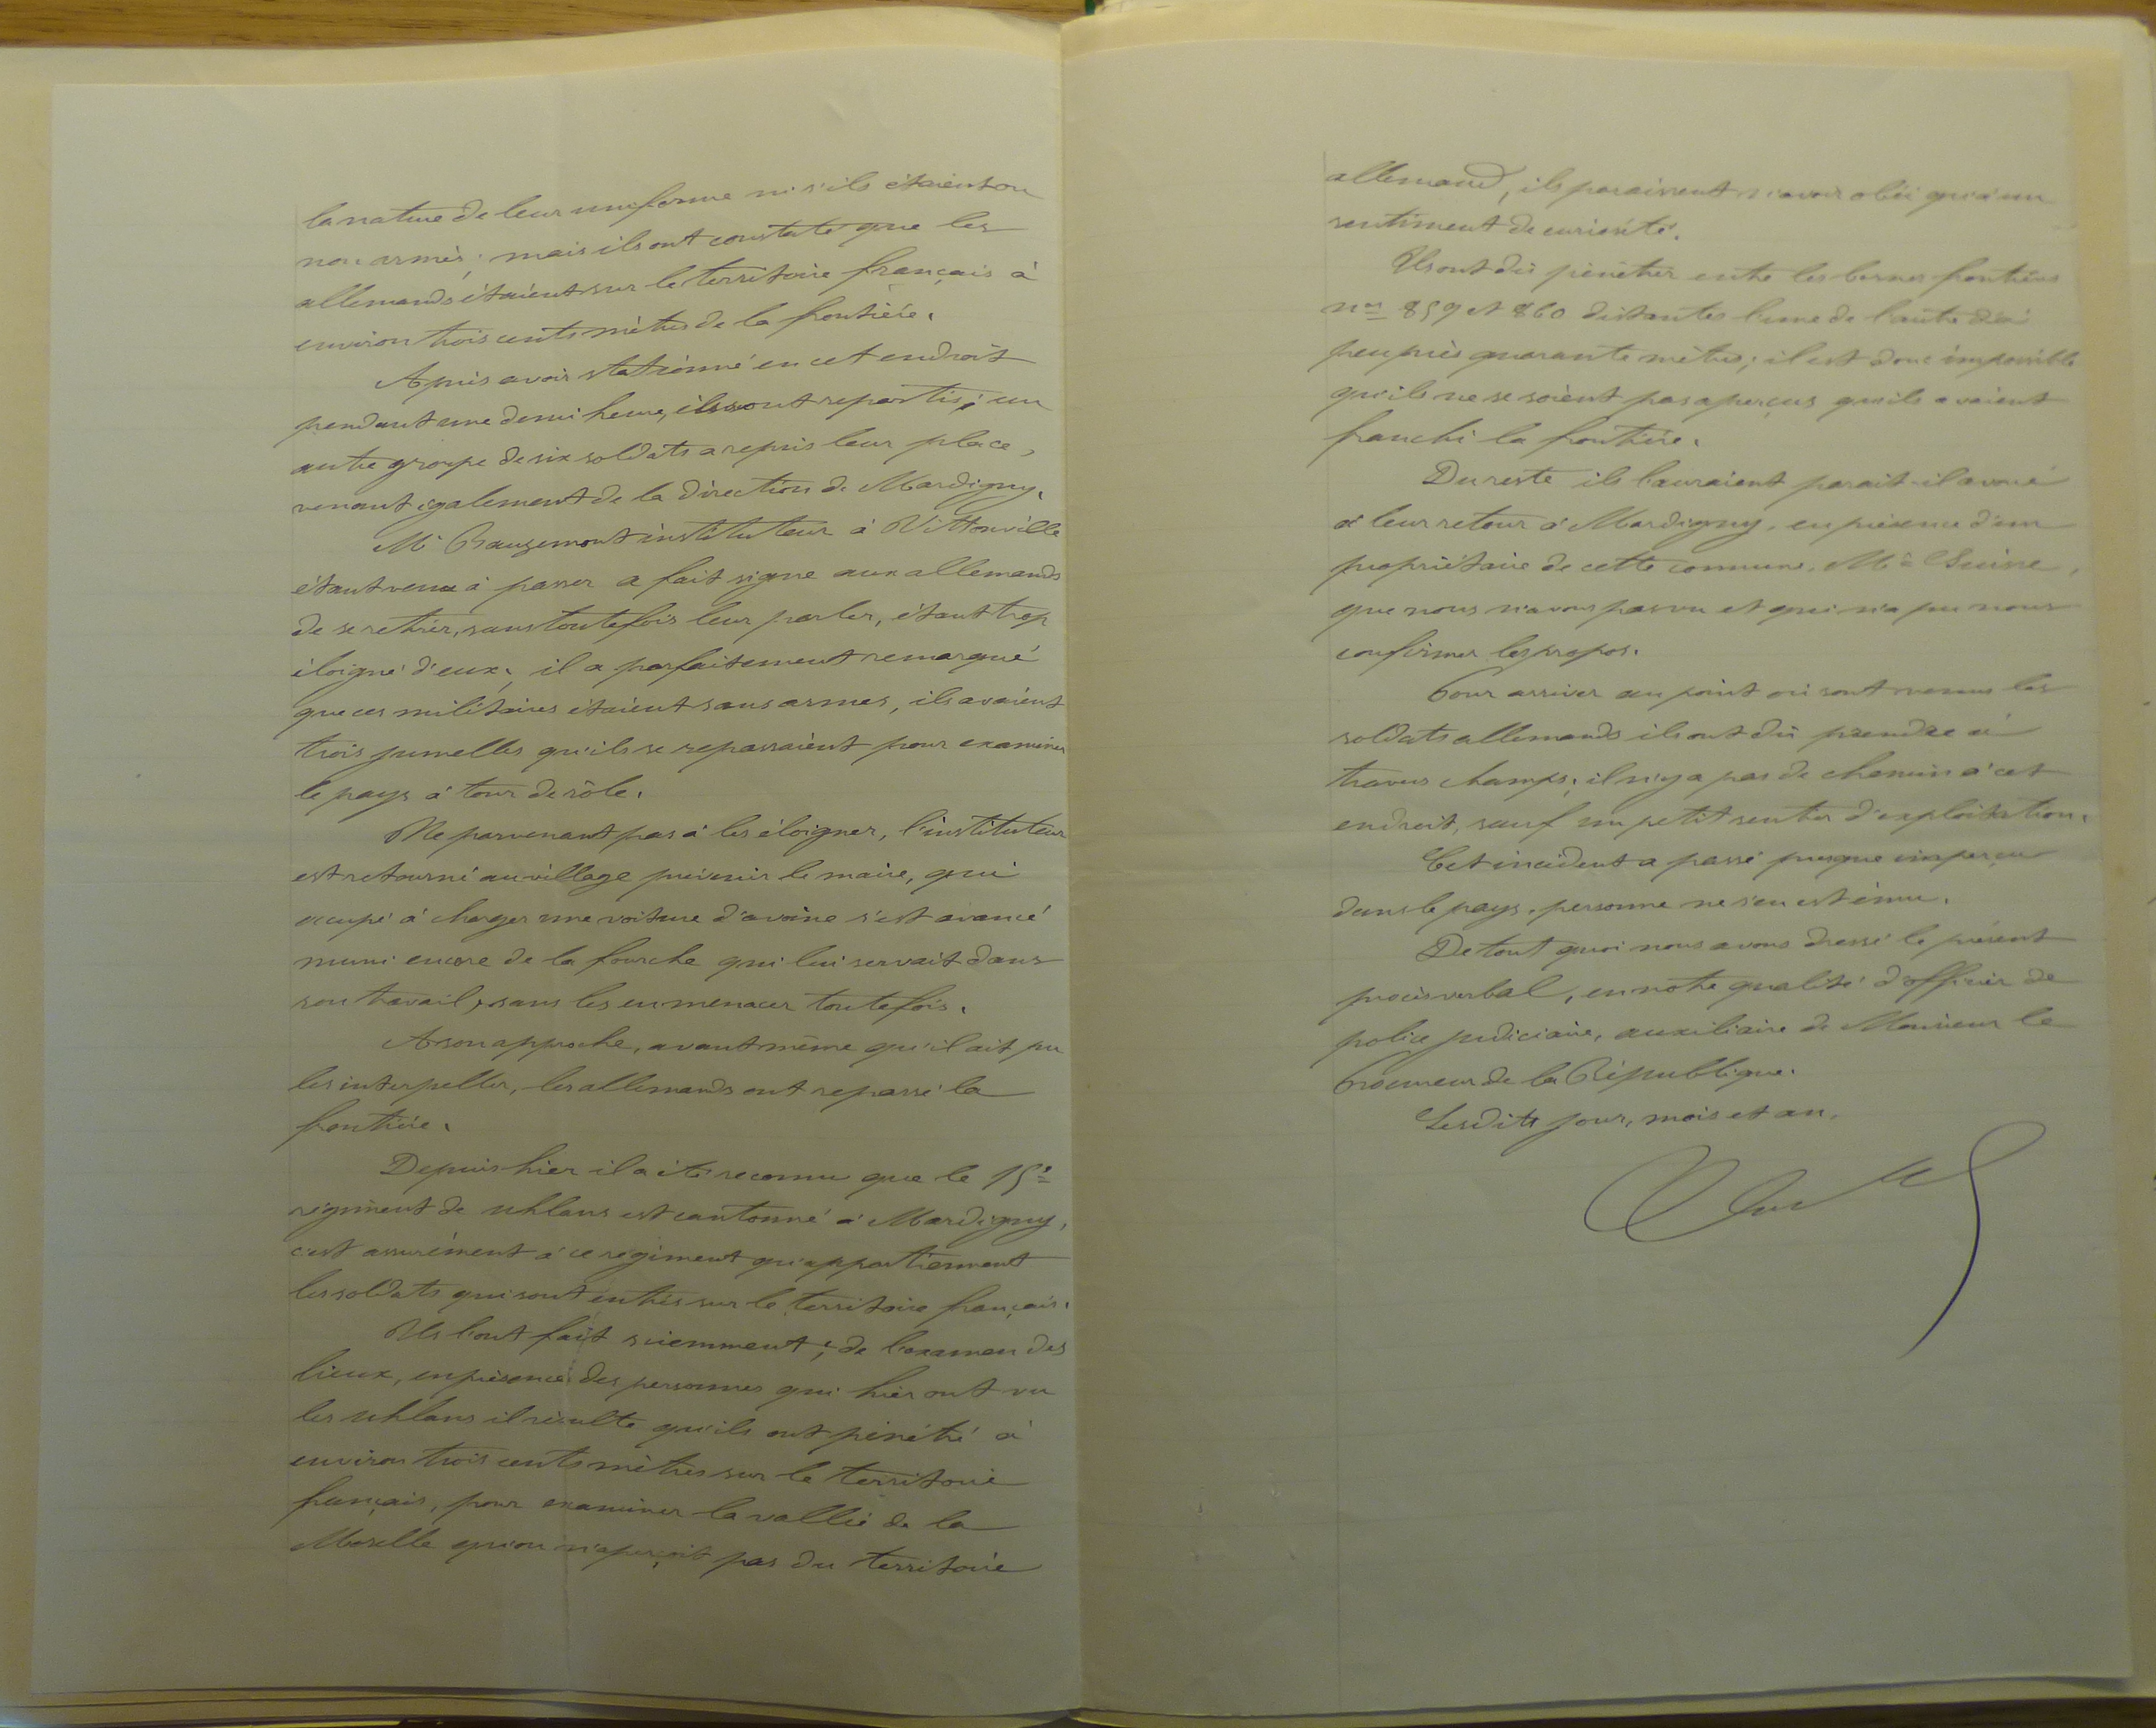 la nature de leur uniforme ni s'ils étaient ou
non armés; mais ils ont constaté que les
allemands étaient sur le territoire français à
environ trois cents mètres de la frontière.
Après avoir stationné en cet endroit
pendant une demi heure, ils sont repartis; un
autre groupe de six soldats a repris leur place,
venant également de la direction de Mardigny.
Mr Baugemont instituteur à Vittonville
étant venu à passer a fait signe aux allemands
de se retirer, sans toutefois leur parler, étant trop
éloigné d'eux; il a parfaitement remarqué
que ces militaires étaient sans armes, ils avaient
trois jumelles qu'ils se repassaient pour examiner
le pays à tour de rôle.
Ne parvenant pas à les éloigner, l'instituteur
est retourné au village prévenir le maire, qui
occupé à charger une voiture d'avoine s'est avancé
muni encore de la fourche qui lui servait dans
son travail, sans les en menacer toutefois.
A son approche, avant même qu'il ait pu
les interpeller, les allemands ont repassé la
frontière.
Depuis hier il a été reconnu que le 15e
régiment de uhlans est cantonné à Mardigny,
c'est assurément à ce régiment qu'appartiennent
les soldats qui sont entrés sur le territoire français.
Ils l'ont fait sciemment; de l'examen des
lieux, en présence des personnes qui hier ont vu
les uhlans il résulte qu'ils ont pénétré à
environ trois cents mètres sur le territoire
français, pour examiner la vallée de la
Moselle qu'on n'aperçoit pas du territoire
allemand, ils paraissent n'avoir obéi qu'à un
sentiment de curiosité.
Ils ont dû pénétrer entre les bornes frontières
nos 859 et 860 distantes l'une de l'autre d'à
peu près quarante mètres; il est donc impossible
qu'ils ne se soient pas aperçus qu'ils avaient
franchi la frontière.
Du reste ils l'auraient parait-il avoué
à leur retour à Mardigny, en présence d'un
propriétaire de cette commune, Mr Suisse,
que nous n'avons pas vu et qui n'a pu nous
confirmer les propos.
Pour arriver au point où sont venus les
soldats allemands ils ont dû prendre à
travers champs; il n'y a pas de chemin à cet
endroit, sauf un petit sentier d'exploitation.
Cet incident a passé presque inaperçu
dans le pays, personne ne s'en est ému.
De tout quoi nous avons dressé le présent
procès verbal, en notre qualité d'officier de
police judiciaire, auxiliaire de Monsieur le
Procureur de la République.
Lesdits jour, mois et an.